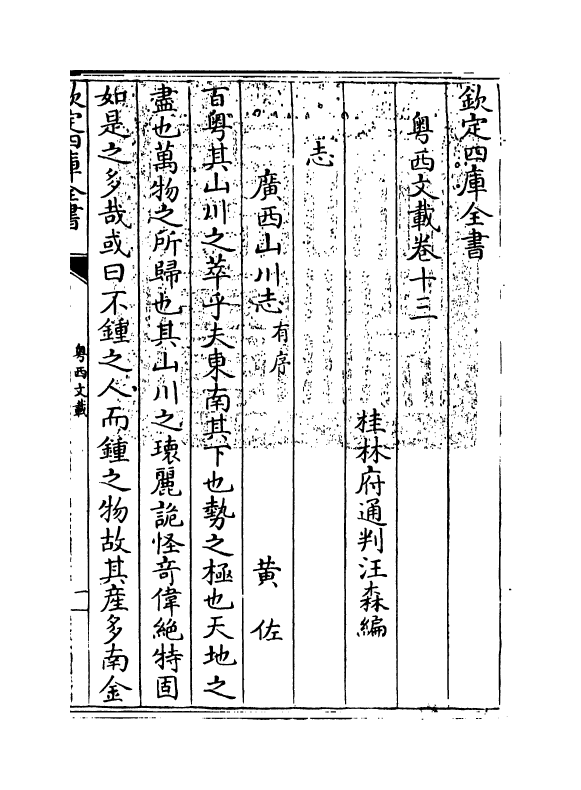 欽定四庫全書
粤西文載卷十三
桂林府通判汪森編
志
廣西山川志有序 黄佐
百粤其山川之萃乎夫東南其下也勢之極也天地之
盡也萬物之所歸也其山川之瓌麗詭怪竒偉絶特固
如是之多哉或曰不鍾之人而鍾之物故其産多南金
欽定四庫全書
粤西文載
一